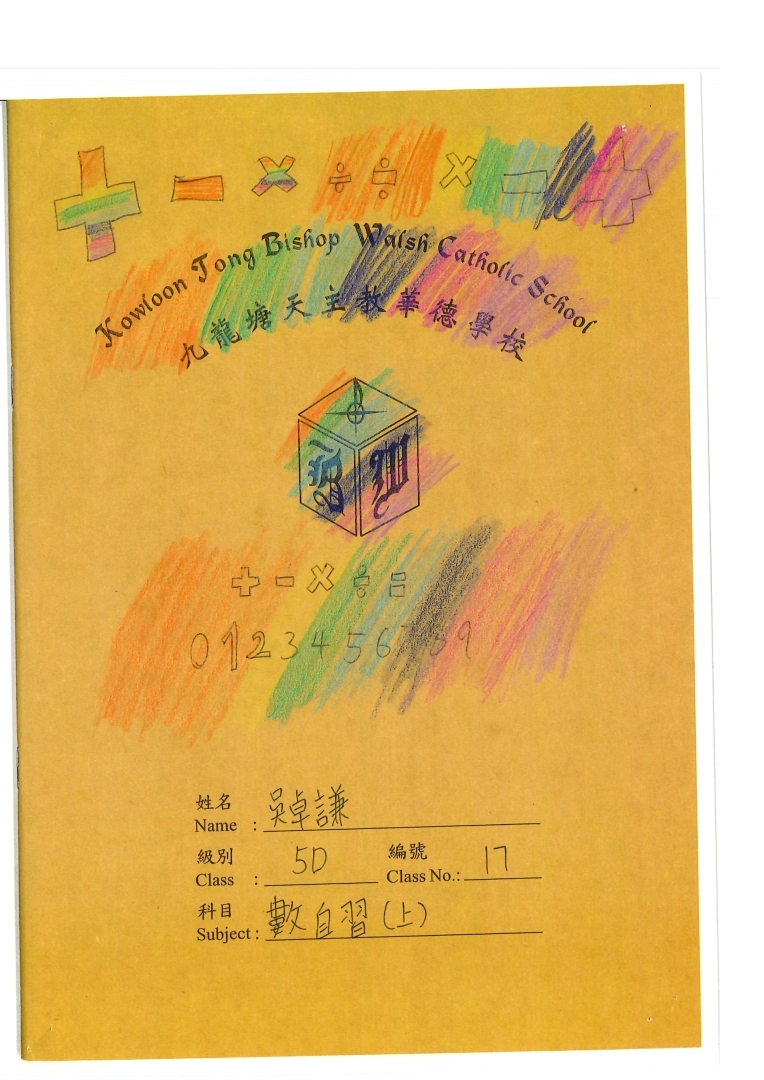 + - × ÷ ÷ × - +
Kowloon Tong Bishop Walsh Catholic School
九龍塘天主教華德學校
B W
+ - × ÷ =
0123456789
姓名
Name : 吳卓謙
級別 編號
Class : 5D Class No.: 17
科目
Subject : 數自習(上)